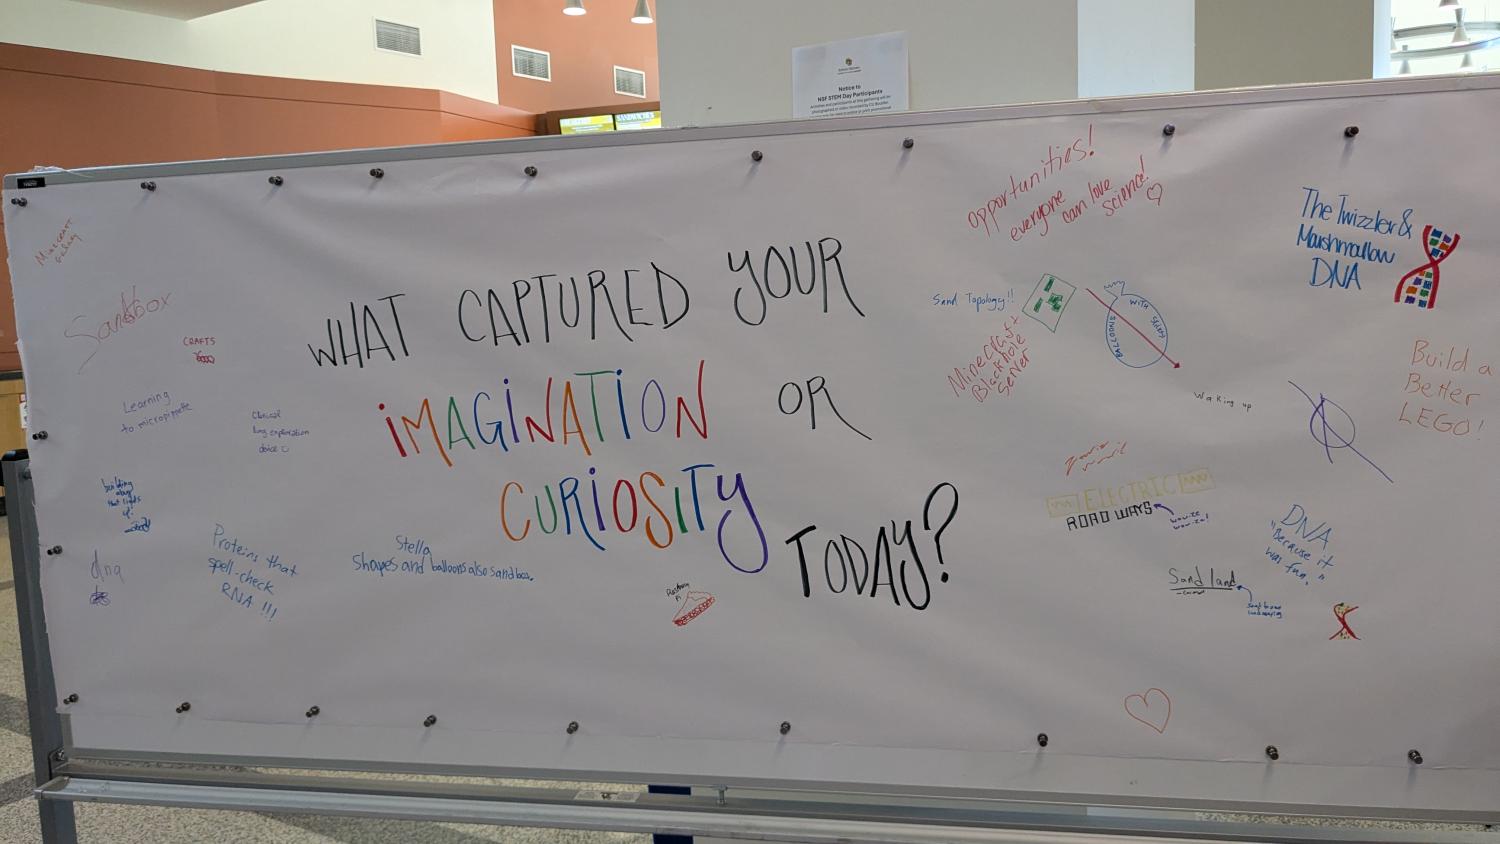 Notice to
NSF STEM Day Participants
SANDWICHES
WHAT CAPTURED YOUR
IMAGINATION OR
CURIOSITY
TODAY?
Sandbox
CRAFTS
Learning
to micropipette
Clinical
lung exploration
device
building
that lights
up!
dna
Proteins that
spell-check
RNA!!!
Stella
Shapes and balloons also sandbox.
opportunities!
everyone
can love
science!
Sand Topology!!
Minecraft +
Blackhole
server
BALLOONS
WITH
Waking up
The Twizzler &
Marshmallow
DNA
Build a
Better
LEGO!
ELECTRIC
ROADWAYS
DNA
"Because it
was fun."
Sand land